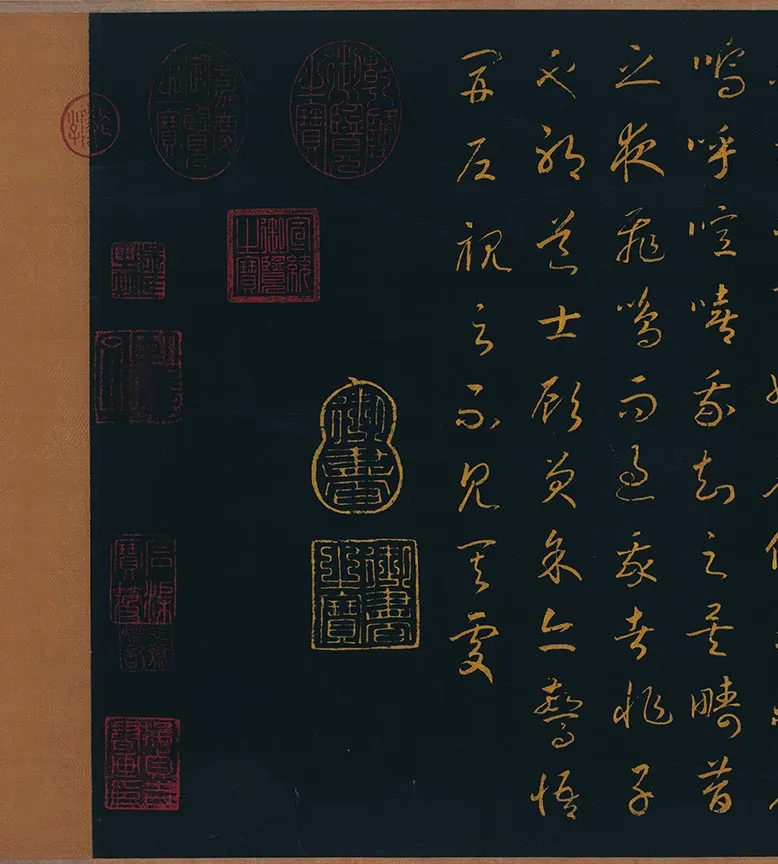 嗚呼噫嘻我知之矣疇昔
之夜飛鳴而過我者非子
也耶道士顧笑余亦驚悟
開戶視之不見其處
乾隆御覽之寶
嘉慶御覽之寶
宣統御覽之寶
御書
御書之寶
石渠寶笈